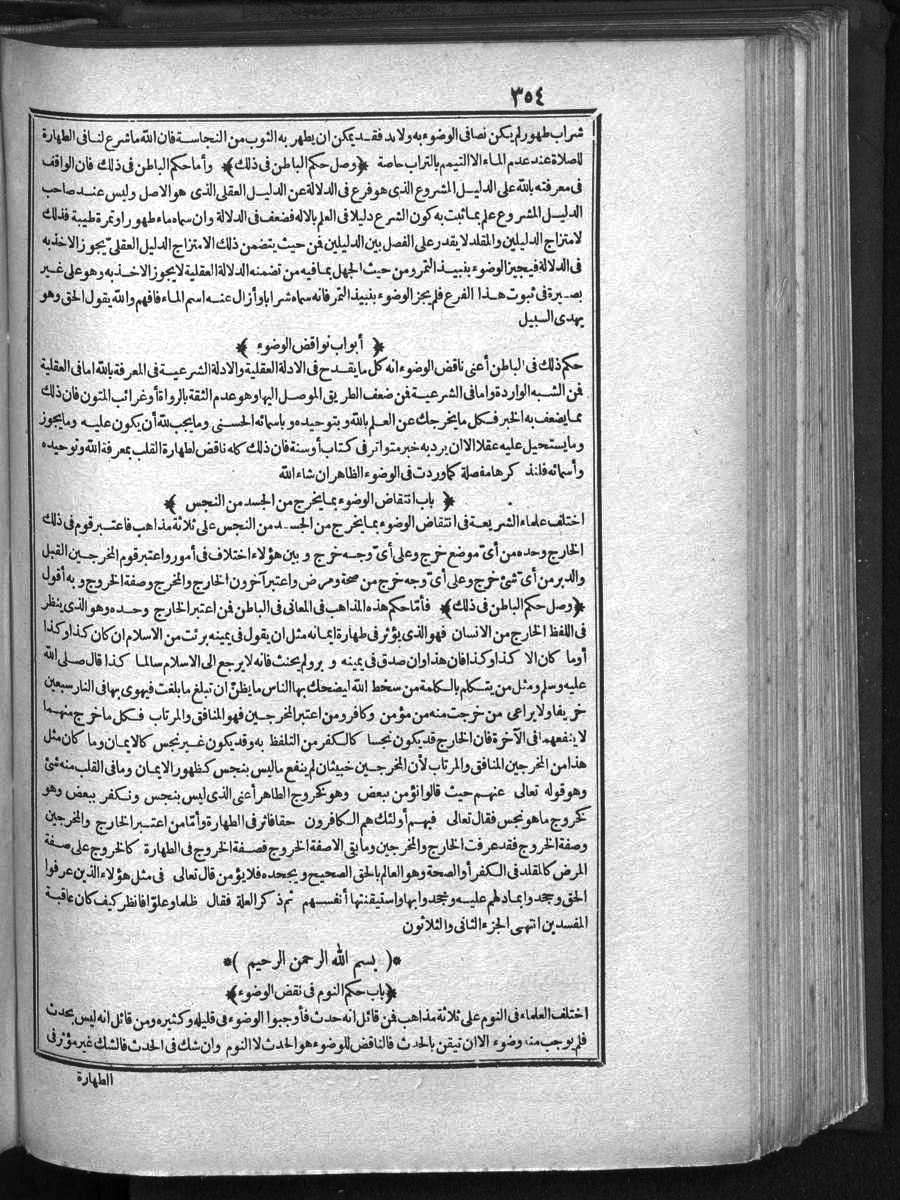 ٣٥٤
شراب طهور لم يكن نصا فى الوضوء به ولا بد فقد يمكن ان يطهر به الثوب من النجاسة فان الله ما شرع لنا فى الطهارة
للصلاة عند عدم الماء الا التيمم بالتراب خاصة ﴿وصل حكم الباطن فى ذلك﴾ وأما حكم الباطن فى ذلك فان الواقف
فى معرفته بالله على الدليل المشروع الذى هو فرع فى الدلالة عن الدليل العقلى الذى هو الاصل وليس عند صاحب
الدليل المشروع علم بما ثبت به كون الشرع دليلا فى العلم بالاله فضعف فى الدلالة وان سماه ماء طهورا وتمرة طيبة فذلك
لامتزاج الدليلين والمقلد لا يقدر على الفصل بين الدليلين فمن حيث يتضمن ذلك الامتزاج الدليل العقلى يجوز الاخذ به
فى الدلالة فيجيز الوضوء بنبيذ التمر ومن حيث الجهل بما فيه من تضمنه الدلالة العقلية لا يجوز الاخذ به وهو على غير
بصيرة فى ثبوت هذا الفرع فلم يجز الوضوء بنبيذ التمر فانه سماه شرابا وأزال عنه اسم الماء فافهم والله يقول الحق وهو
يهدى السبيل
﴿ أبواب نواقض الوضوء ﴾
حكم ذلك فى الباطن أعنى ناقض الوضوء انه كل ما يقدح فى الادلة العقلية والادلة الشرعية فى المعرفة بالله اما فى العقلية
فمن الشبه الواردة واما فى الشرعية فمن ضعف الطريق الموصل اليها وهو عدم الثقة بالرواة أو غرائب المتون فان ذلك
مما يضعف به الخبر فكل ما يخرجك عن العلم بالله وبتوحيده وباسمائه الحسنى وما يجب لله أن يكون عليه وما يجوز
وما يستحيل عليه عقلا الا ان يرد به خبر متواتر فى كتاب أو سنة فان ذلك كله ناقض لطهارة القلب بمعرفة الله وتوحيده
وأسمائه فلنذكرها مفصلة كما وردت فى الوضوء الظاهر ان شاء الله
﴿ باب انتقاض الوضوء بما يخرج من الجسد من النجس ﴾
اختلف علماء الشريعة فى انتقاض الوضوء بما يخرج من الجسد من النجس على ثلاثة مذاهب فاعتبر قوم فى ذلك
الخارج وحده من أىّ موضع خرج وعلى أىّ وجه خرج وبين هؤلاء اختلاف فى أمور واعتبر قوم المخرجين القبل
والدبر من أىّ شئ خرج وعلى أىّ وجه خرج من صحة ومرض واعتبر آخرون الخارج والمخرج وصفة الخروج وبه أقول
﴿وصل حكم الباطن فى ذلك﴾ فأمّا حكم هذه المذاهب فى المعانى فى الباطن فمن اعتبر الخارج وحده وهو الذى ينظر
فى اللفظ الخارج من الانسان فهو الذى يؤثر فى طهارة ايمانه مثل ان يقول فى يمينه برئت من الاسلام ان كان كذا وكذا
أو ما كان الا كذا وكذا فان هذا وان صدق فى يمينه وبر ولم يحنث فانه لا يرجع الى الاسلام سالما كذا قال صلى الله
عليه وسلم ومثل من يتكلم بالكلمة من سخط الله ليضحك بها الناس ما يظنّ ان تبلغ ما بلغت فيهوى بها فى النار سبعين
خريفا ولا يراعى من خرجت منه من مؤمن وكافر ومن اعتبر المخرجين فهو المنافق والمرتاب فكل ما خرج منهما
لا ينفعهما فى الآخرة فان الخارج قد يكون نجسا كالكفر من التلفظ به وقد يكون غير نجس كالايمان وما كان مثل
هذا من المخرجين المنافق والمرتاب لأن المخرجين خبيثان لم ينفع ما ليس بنجس كظهور الايمان وما فى القلب منه شئ
وهو قوله تعالى عنهم حيث قالوا نؤمن ببعض وهو كخروج الطاهر أعنى الذى ليس بنجس ونكفر ببعض وهو
كخروج ما هو نجس فقال تعالى فيهم أولئك هم الكافرون حقا فاثر فى الطهارة وأمّا من اعتبر الخارج والمخرجين
وصفة الخروج فقد عرفت الخارج والمخرجين وما بقى الا صفة الخروج فصفة الخروج فى الطهارة كالخروج على صفة
المرض كالمقلد فى الكفر أو الصحة وهو العالم بالحق الصحيح ويجحده فلا يؤمن قال تعالى فى مثل هؤلاء الذين عرفوا
الحق وجحدوا بما دلهم عليه وجحدوا بها واستيقنتها أنفسهم ثم ذكر العلة فقال ظلما وعلوّا فانظر كيف كان عاقبة
المفسدين انتهى الجزء الثانى والثلاثون
*( بسم الله الرحمن الرحيم )*
﴿باب حكم النوم فى نقض الوضوء﴾
اختلف العلماء فى النوم على ثلاثة مذاهب فمن قائل انه حدث فأوجبوا الوضوء فى قليله وكثيره ومن قائل انه ليس بحدث
فلم يوجب منه وضوء الا ان تيقن بالحدث فالناقض للوضوء هو الحدث لا النوم وان شك فى الحدث فالشك غير مؤثر فى
الطهارة